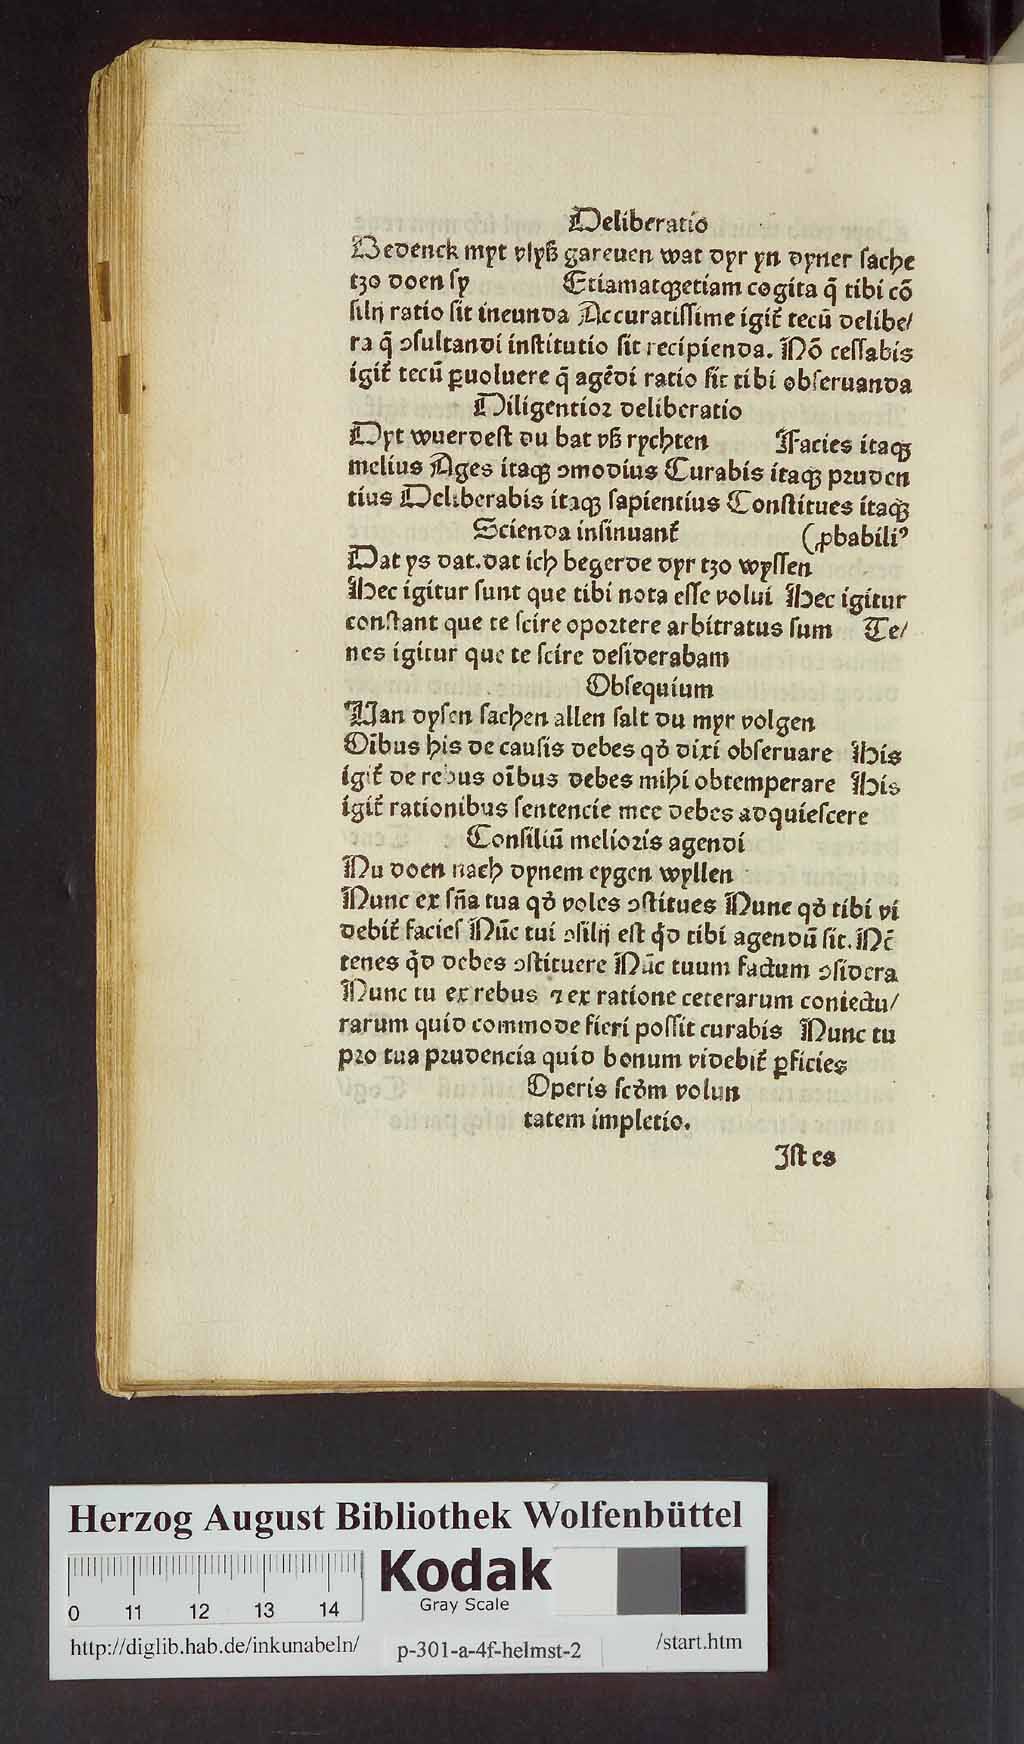 Deliberatio
Bedenck myt vlyß gareuen wat dyr yn dyner sache
tzo doen sy Etiamatqꝫetiam cogita q̄ tibi cō
silij ratio sit ineunda Accuratissime igit̃ tecū delibe/
ra q̄ ↄsultandi institutio sit recipienda. Nō cessabis
igit̃ tecū ꝑuoluere q̄ agēdi ratio sit tibi obseruanda
Diligentior deliberatio
Dyt wuerdest du bat vß rychten Facies itaqꝫ
melius Ages itaqꝫ ↄmodius Curabis itaqꝫ pruden
tius Deliberabis itaqꝫ sapientius Constitues itaqꝫ
Scienda insinuant̃ (ꝓbabiliꝰ
Dat ys dat. dat ich begerde dyr tzo wyssen
Hec igitur sunt que tibi nota esse volui Hec igitur
constant que te scire oportere arbitratus sum Te/
nes igitur que te scire desiderabam
Obsequium
Uan dysen sachen allen salt du myr volgen
Oībus his de causis debes qd̓ dixi obseruare His
igit̃ de rebus oībus debes mihi obtemperare His
igit̃ rationibus sentencie mee debes adquiescere
Consiliū melioris agendi
Nu doen nach dynem eygen wyllen
Nunc ex sn̄a tua qd̓ voles ↄstitues Nunc qd̓ tibi vi
debit̃ facies Nūc tui ↄsilij est qd̓ tibi agendū sit. Nc̄
tenes qd̓ debes ↄstituere Nūc tuum factum ↄsidera
Nunc tu ex rebus ⁊ ex ratione ceterarum coniectu/
rarum quid commode fieri possit curabis Nunc tu
pro tua prudencia quid bonum videbit̃ ꝑficies
Operis scd̓m volun
tatem impletio.
Ist es
Herzog August Bibliothek Wolfenbüttel
Kodak
Gray Scale
0 11 12 13 14
http://diglib.hab.de/inkunabeln/ p-301-a-4f-helmst-2 /start.htm